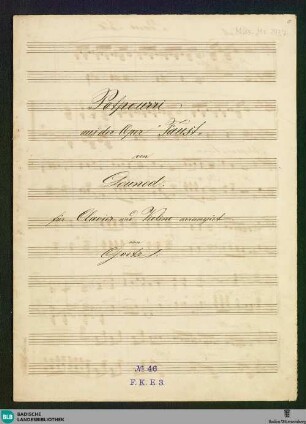 Potpourri
aus der Oper "Faust"
von
Gounod
für Clavier und Violine arrangirt
von
№ 46
F. K. E 3.
BLB BADISCHE LANDESBIBLIOTHEK
Baden-Württemberg